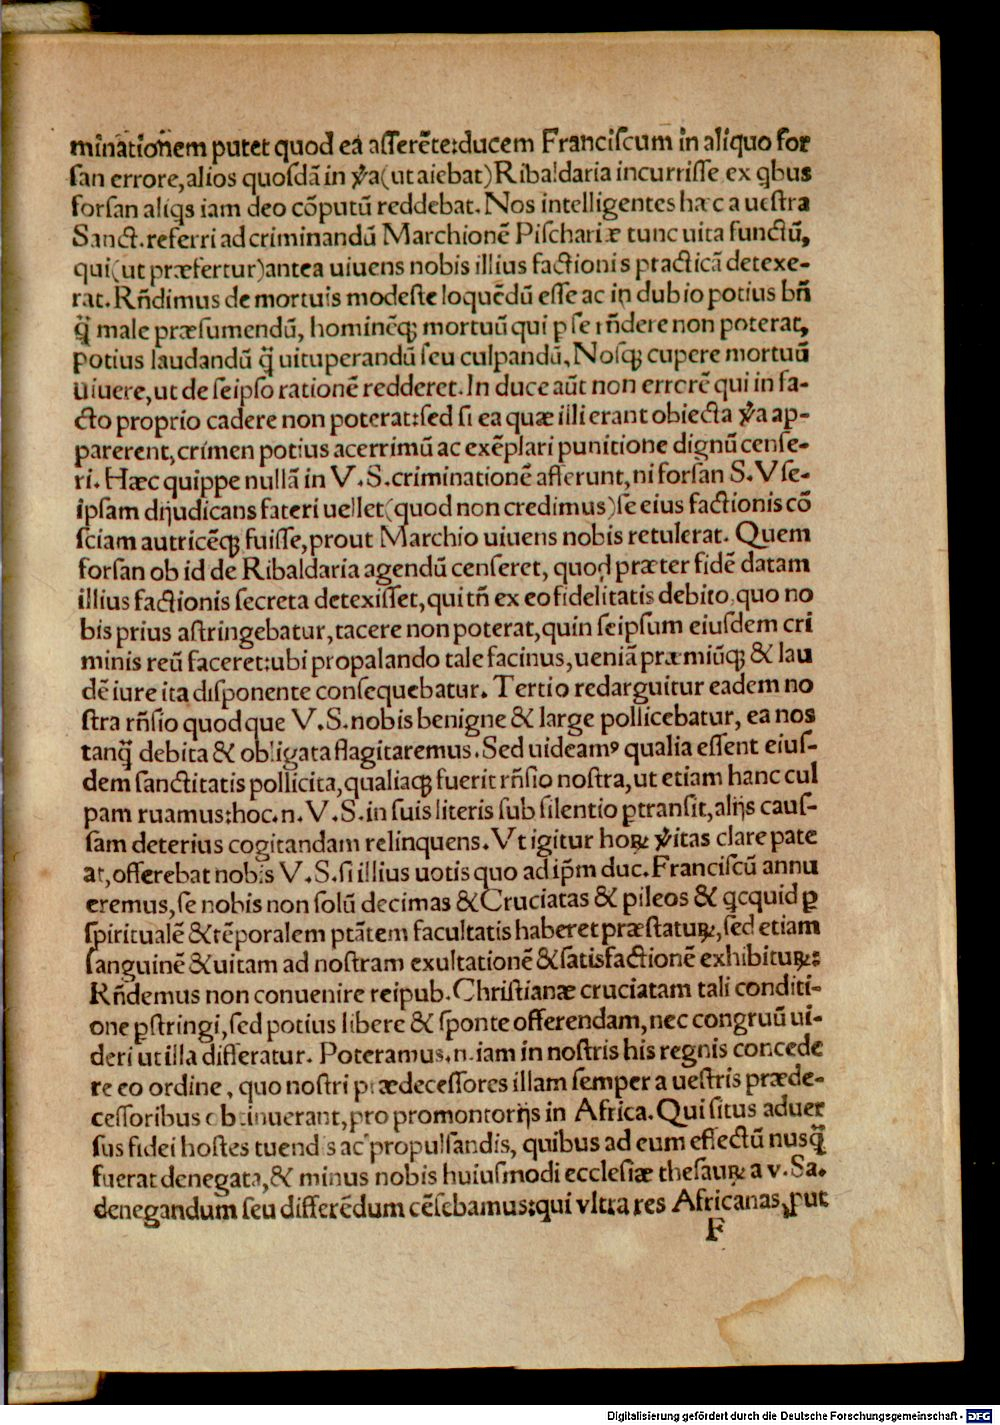 minationem putet quod ea asserēte:ducem Franciscum in aliquo for
san errore,alios quosdā in ꝟa(ut aiebat)Ribaldaria incurrisse ex qbus
forsan aliqs iam deo cōputū reddebat. Nos intelligentes hæc a uestra
Sanct. referri ad criminandū Marchionē Pischariæ tunc uita functū,
qui(ut præfertur)antea uiuens nobis illius factionis practicā detexe-
rat. Rñdimus de mortuis modeste loquēdū esse ac in dubio potius bñ
q̃ male præsumendū, hominēqꝫ mortuū qui p se rñdere non poterat,
potius laudandū q̃ uituperandū seu culpandū, Nosqꝫ cupere mortuū
uiuere,ut de seipso rationē redderet. In duce aūt non errorē qui in fa-
cto proprio cadere non poterat:sed si ea quæ illi erant obiecta ꝟa ap-
parerent,crimen potius acerrimū ac exēplari punitione dignū cense-
ri. Hæc quippe nullā in V.S.criminationē afferunt,ni forsan S.V se-
ipsam dijudicans fateri uellet(quod non credimus)se eius factionis cō
sciam autricēqꝫ fuisse,prout Marchio uiuens nobis retulerat. Quem
forsan ob id de Ribaldaria agendū censeret, quod præter fidē datam
illius factionis secreta detexisset,qui tñ ex eo fidelitatis debito,quo no
bis prius astringebatur,tacere non poterat,quin seipsum eiusdem cri
minis reū faceret:ubi propalando tale facinus,ueniā præmiūqꝫ & lau
dē iure ita disponente consequebatur. Tertio redarguitur eadem no
stra rñsio quod que V.S.nobis benigne & large pollicebatur, ea nos
tanq̃ debita & obligata flagitaremus. Sed uideamꝰ qualia essent eius-
dem sanctitatis pollicita,qualiaqꝫ fuerit rñsio nostra,ut etiam hanc cul
pam ruamus:hoc.n.V.S.in suis literis sub silentio ꝑtransit,alijs caus-
sam deterius cogitandam relinquens. Vt igitur hoꝝ ꝟitas clare pate
at,offerebat nobis V.S.si illius uotis quo ad ip̄m duc. Franciscū annu
eremus,se nobis non solū decimas & Cruciatas & pileos & qcquid ꝑ
spiritualē & tēporalem ptātem facultatis haberet præstatuꝝ,sed etiam
sanguinē & uitam ad nostram exultationē & satisfactionē exhibituꝝ:
Rñdemus non conuenire reipub. Christianæ cruciatam tali conditi-
one ꝑstringi,sed potius libere & sponte offerendam,nec congruū ui-
deri ut illa differatur. Poteramus.n.iam in nostris his regnis concede
re eo ordine, quo nostri prædecessores illam semper a uestris præde-
cessoribus obtinuerant,pro promontorijs in Africa. Qui situs aduer
sus fidei hostes tuendis ac propulsandis, quibus ad eum effectū nusq̃
fuerat denegata,& minus nobis huiusmodi ecclesiæ thesauꝝ a v. Sa.
denegandum seu differēdum cēsebamus:qui vltra res Africanas,ꝓut
F
Digitalisierung gefördert durch die Deutsche Forschungsgemeinschaft - DFG